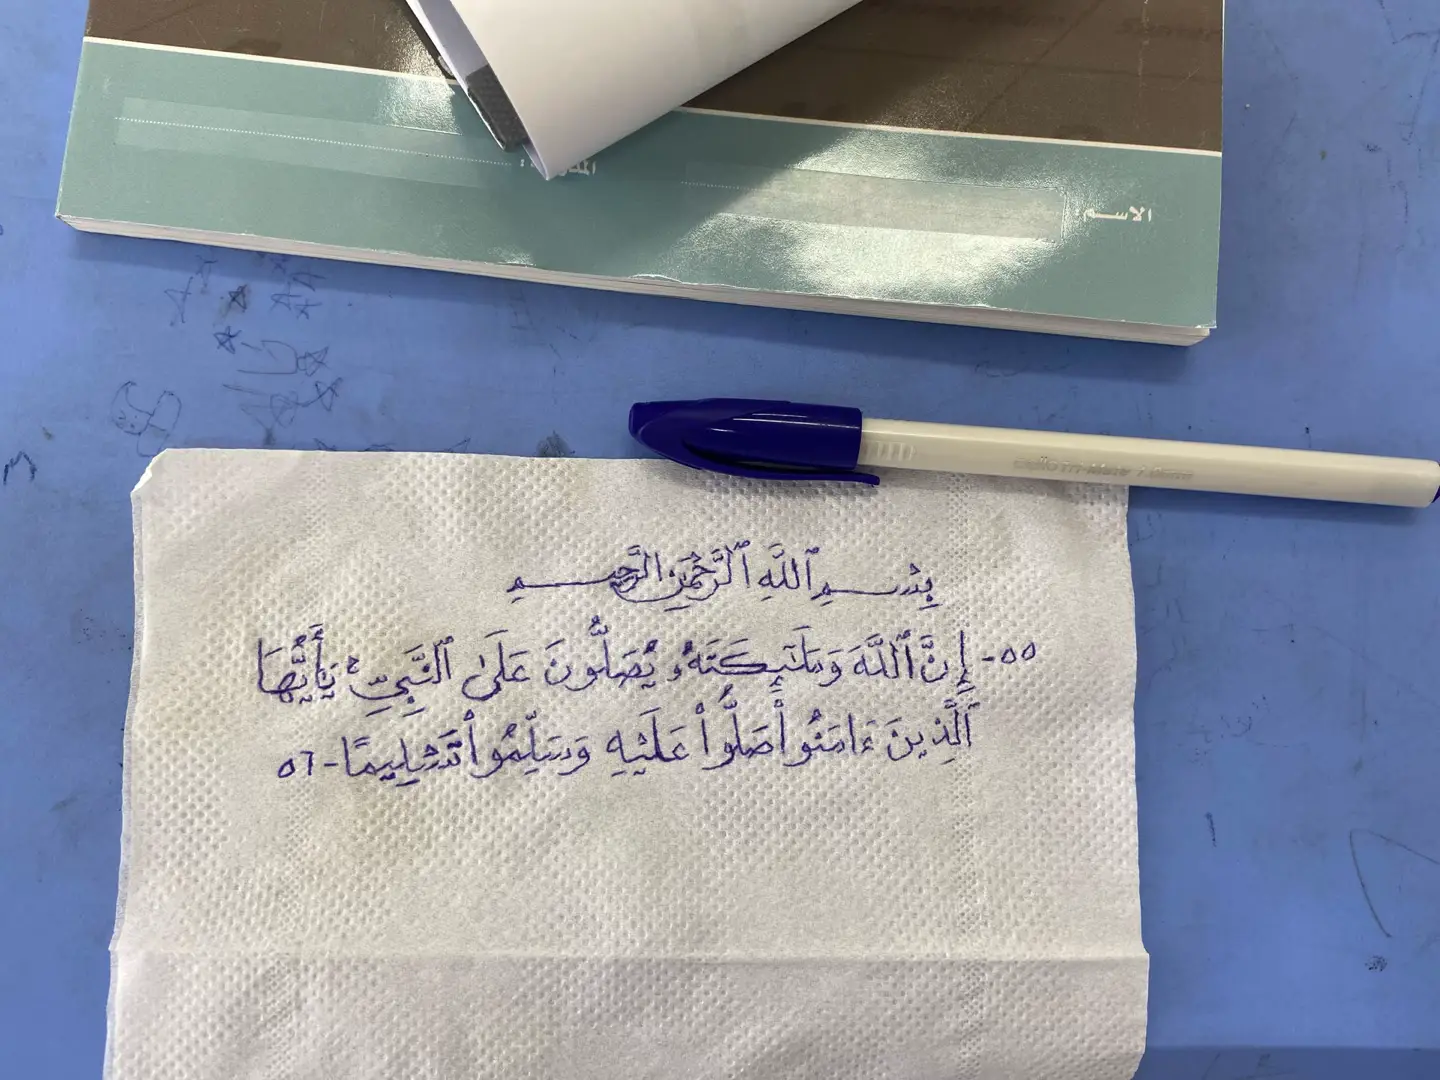 الاسم:
بِسْمِ ٱللَّهِ ٱلرَّحْمَٰنِ ٱلرَّحِيمِ
٥٥- إِنَّ ٱللَّهَ وَمَلَٰٓئِكَتَهُۥ يُصَلُّونَ عَلَى ٱلنَّبِيِّ ۚ يَٰٓأَيُّهَا
ٱلَّذِينَ ءَامَنُوا۟ صَلُّوا۟ عَلَيْهِ وَسَلِّمُوا۟ تَسْلِيمًا -٥٦